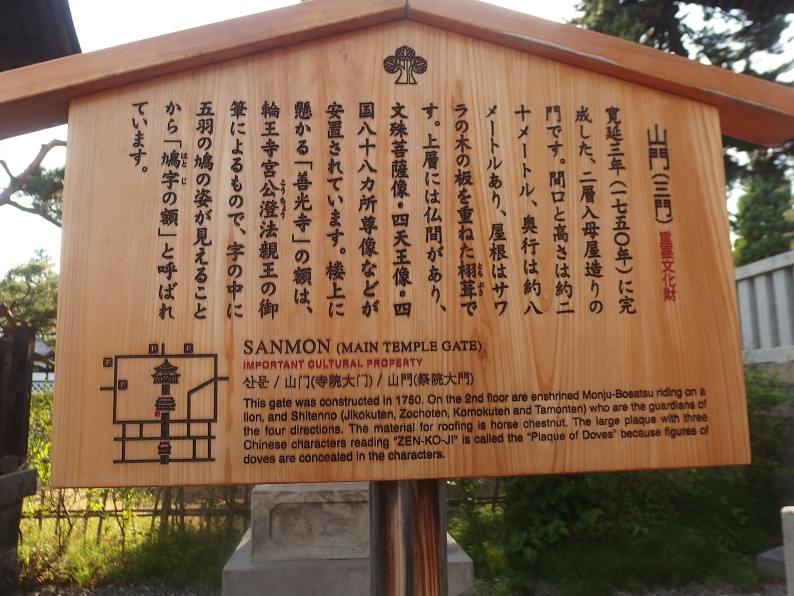 山門（三門） 重要文化財
寛延三年（一七五〇年）に完
成した、二層入母屋造りの
門です。間口と高さは約二
十メートル、奥行は約八
メートルあり、屋根はサワ
ラの木の板を重ねた栩葺で
とちぶき
す。上層には仏間があり、
文殊菩薩像・四天王像・四
国八十八カ所尊像などが
安置されています。楼上に
懸かる「善光寺」の額は、
輪王寺宮公澄法親王の御
こうちょう
筆によるもので、字の中に
五羽の鳩の姿が見えること
から「鳩字の額」と呼ばれ
はとじ
ています。
SANMON (MAIN TEMPLE GATE)
IMPORTANT CULTURAL PROPERTY
산문 / 山门(寺院大门) / 山門(祭院大門)
This gate was constructed in 1750. On the 2nd floor are enshrined Monju-Bosatsu riding on a
lion, and Shitenno (Jikokuten, Zochoten, Komokuten and Tamonten) who are the guardians of
the four directions. The material for roofing is horse chestnut. The large plaque with three
Chinese characters reading "ZEN-KO-JI" is called the "Plaque of Doves" because figures of
doves are concealed in the characters.
P P
P
P